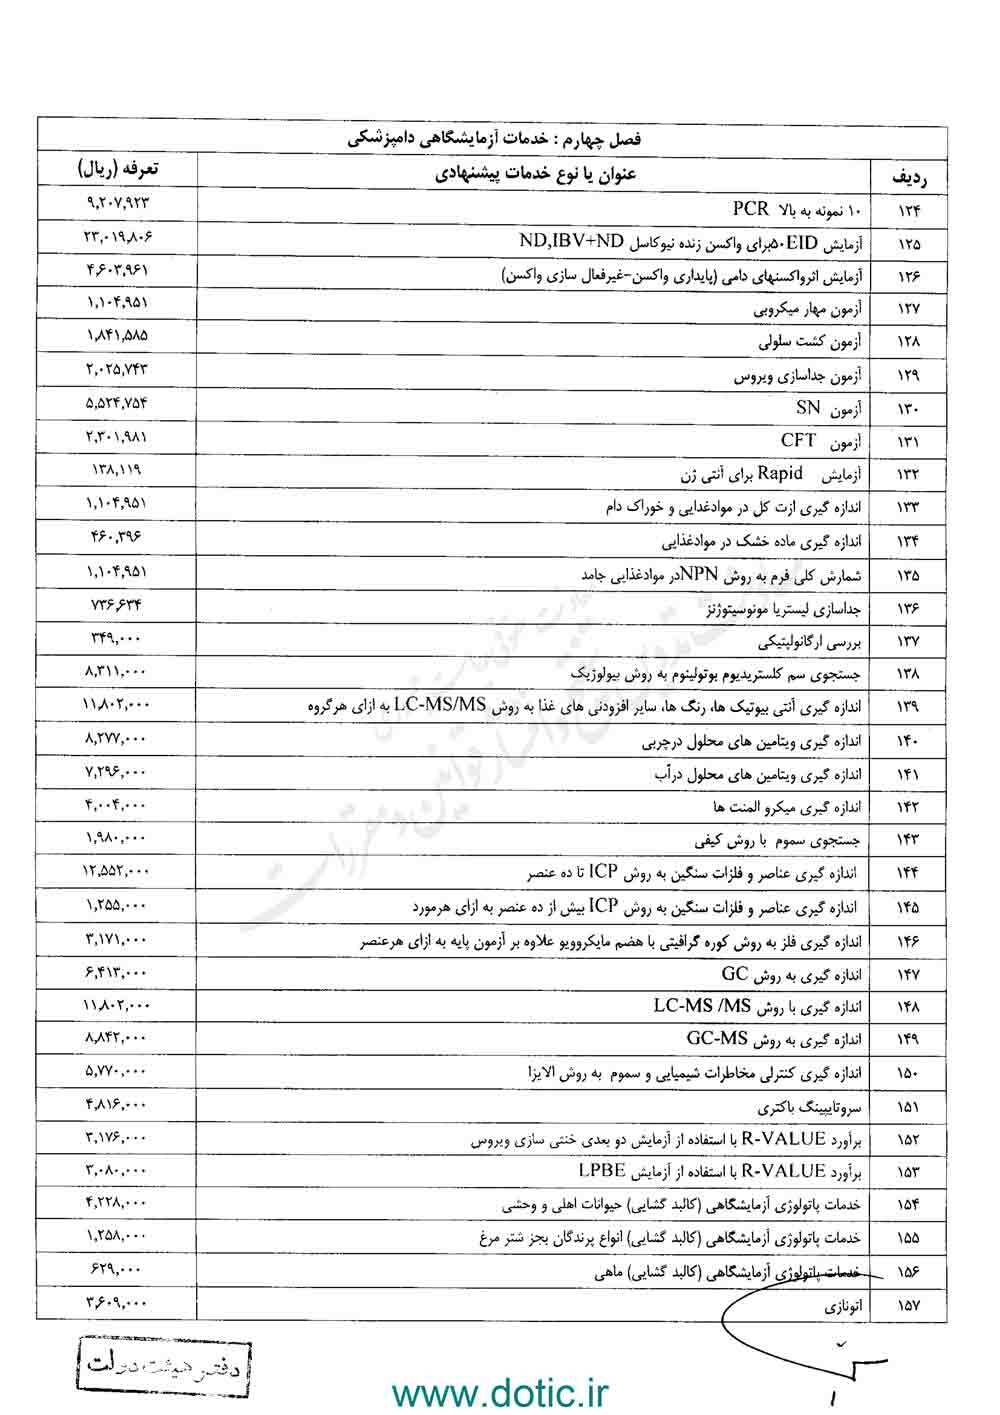 فصل چهارم : خدمات آزمایشگاهی دامپزشکی
ردیف عنوان یا نوع خدمات پیشنهادی تعرفه (ریال)
۱۲۴ ۱۰ نمونه به بالا PCR ۹,۲۰۷,۹۲۳
۱۲۵ آزمایش EID۵۰برای واکسن زنده نیوکاسل ND,IBV+ND ۲۳,۰۱۹,۸۰۶
۱۲۶ آزمایش اثرواکسنهای دامی (پایداری واکسن-غیرفعال سازی واکسن) ۴,۶۰۳,۹۶۱
۱۲۷ آزمون مهار میکروبی ۱,۱۰۴,۹۵۱
۱۲۸ آزمون کشت سلولی ۱,۸۴۱,۵۸۵
۱۲۹ آزمون جداسازی ویروس ۲,۰۲۵,۷۴۳
۱۳۰ آزمون SN ۵,۵۲۴,۷۵۴
۱۳۱ آزمون CFT ۲,۳۰۱,۹۸۱
۱۳۲ آزمایش Rapid برای آنتی ژن ۱۳۸,۱۱۹
۱۳۳ اندازه گیری ازت کل در موادغدایی و خوراک دام ۱,۱۰۴,۹۵۱
۱۳۴ اندازه گیری ماده خشک در موادغذایی ۴۶۰,۳۹۶
۱۳۵ شمارش کلی فرم به روش NPNدر موادغذایی جامد ۱,۱۰۴,۹۵۱
۱۳۶ جداسازی لیستریا مونوسیتوژنز ۷۳۶,۶۳۴
۱۳۷ بررسی ارگانولپتیکی ۳۴۹,۰۰۰
۱۳۸ جستجوی سم کلستریدیوم بوتولینوم به روش بیولوژیک ۸,۳۱۱,۰۰۰
۱۳۹ اندازه گیری آنتی بیوتیک ها، رنگ ها، سایر افزودنی های غذا به روش LC-MS/MS به ازای هرگروه ۱۱,۸۰۲,۰۰۰
۱۴۰ اندازه گیری ویتامین های محلول درچربی ۸,۲۷۷,۰۰۰
۱۴۱ اندازه گیری ویتامین های محلول درآب ۷,۲۹۶,۰۰۰
۱۴۲ اندازه گیری میکرو المنت ها ۴,۰۰۴,۰۰۰
۱۴۳ جستجوی سموم با روش کیفی ۱,۹۸۰,۰۰۰
۱۴۴ اندازه گیری عناصر و فلزات سنگین به روش ICP تا ده عنصر ۱۲,۵۵۲,۰۰۰
۱۴۵ اندازه گیری عناصر و فلزات سنگین به روش ICP بیش از ده عنصر به ازای هرمورد ۱,۲۵۵,۰۰۰
۱۴۶ اندازه گیری فلز به روش کوره گرافیتی با هضم مایکروویو علاوه بر آزمون پایه به ازای هرعنصر ۳,۱۷۱,۰۰۰
۱۴۷ اندازه گیری به روش GC ۶,۴۱۳,۰۰۰
۱۴۸ اندازه گیری با روش LC-MS /MS ۱۱,۸۰۲,۰۰۰
۱۴۹ اندازه گیری به روش GC-MS ۸,۸۴۲,۰۰۰
۱۵۰ اندازه گیری کنترلی مخاطرات شیمیایی و سموم به روش الایزا ۵,۷۷۰,۰۰۰
۱۵۱ سروتایپینگ باکتری ۴,۸۱۶,۰۰۰
۱۵۲ برآورد R-VALUE با استفاده از آزمایش دو بعدی خنثی سازی ویروس ۳,۱۷۶,۰۰۰
۱۵۳ برآورد R-VALUE با استفاده از آزمایش LPBE ۳,۰۸۰,۰۰۰
۱۵۴ خدمات پاتولوژی آزمایشگاهی (کالبد گشایی) حیوانات اهلی و وحشی ۴,۲۲۸,۰۰۰
۱۵۵ خدمات پاتولوژی آزمایشگاهی (کالبد گشایی) انواع پرندگان بجز شتر مرغ ۱,۲۵۸,۰۰۰
۱۵۶ خدمات پاتولوژی آزمایشگاهی (کالبد گشایی) ماهی ۶۲۹,۰۰۰
۱۵۷ اتونازی ۳,۶۰۹,۰۰۰
دفتر هیئت دولت
www.dotic.ir